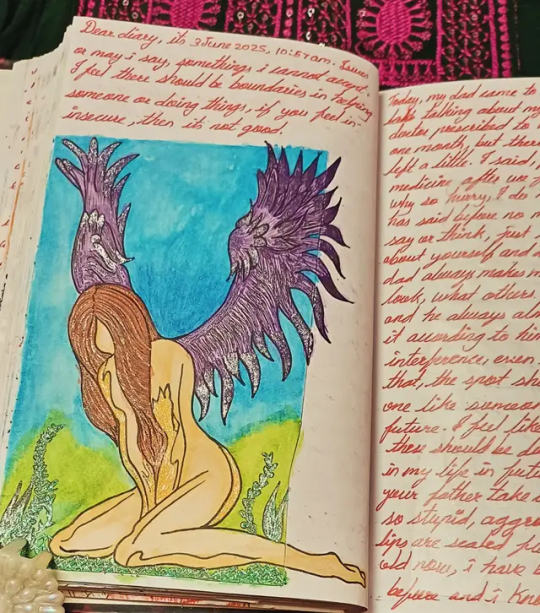 Dear diary, its 3 June 2025, 10:57am.
or may i say, somethings i cannot accept.
I feel there should be boundaries in helping
someone or doing things, if you feel in-
insecure, then its not good.
Today, my dad came to
talking about my
doctor prescribed to
one month, but there
left a little. I said,
medicine after we
why so hurry, I do
has said before no m
say or think, just
about yourself and d
dad always makes m
look, what others,
and he always al
it according to him
interference, even
that, the spot sh
one like someon
future. I feel like
these should be d
in my life in futu
your father take
so stupid, aggre
lips are sealed
old now, i have b
before and i Know